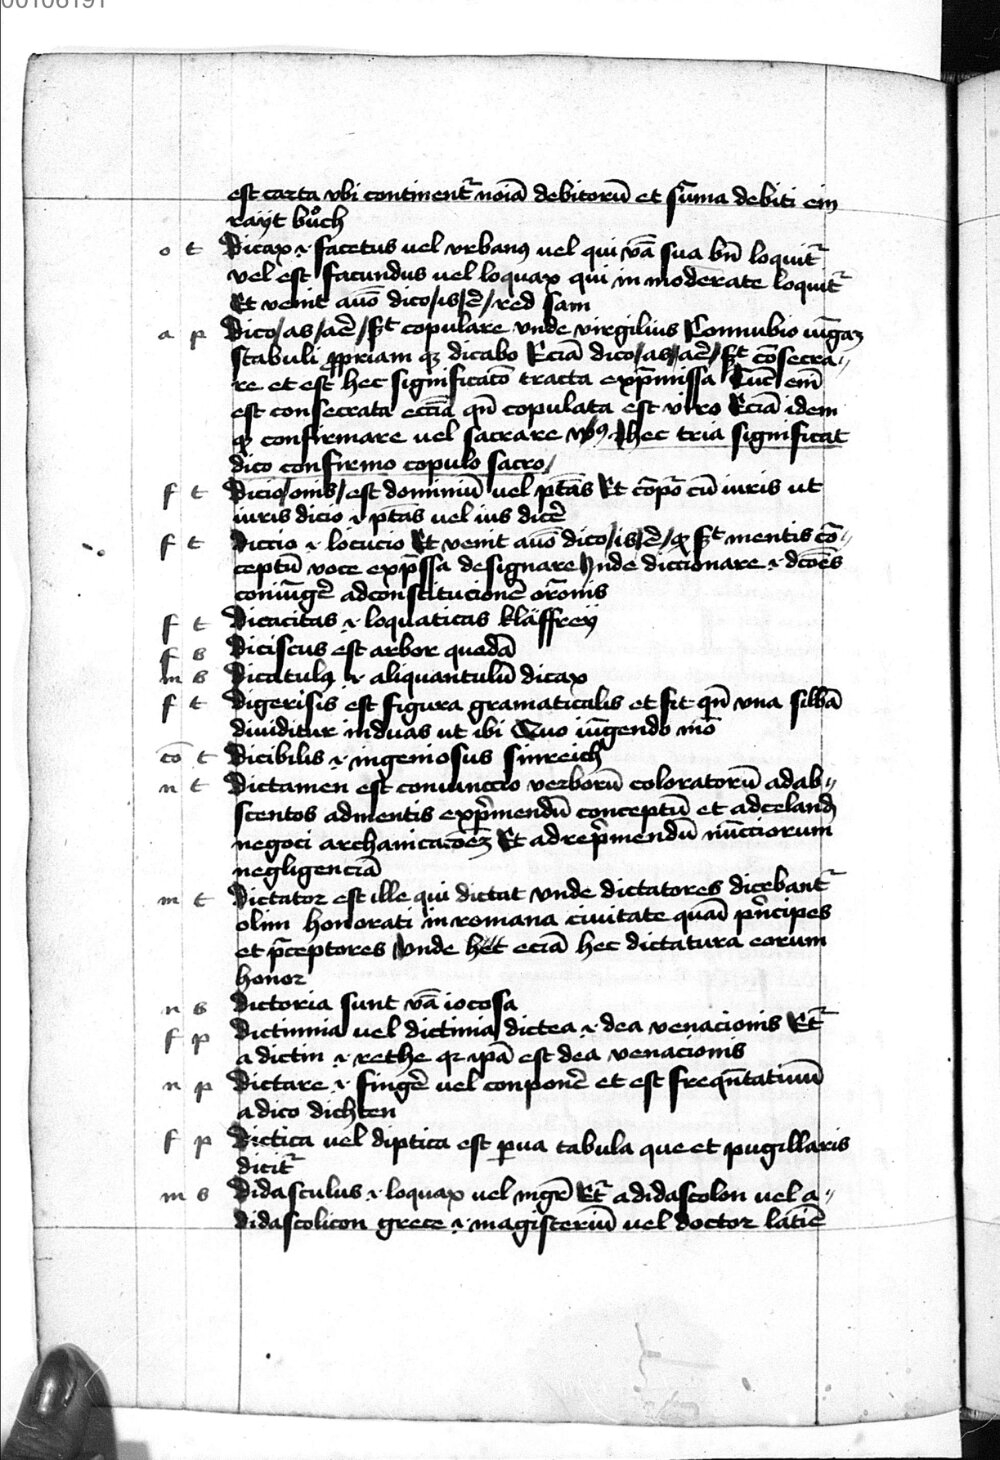 00106191
est carta vbi continent᷑ noı̄a debitorū et sūma debiti ein
rayt bůch
o t Dicax ·i· facetus uel vrbanus uel qui v̄ba sua bn̄ loquit᷑
vel est facundus uel loquax qui in moderate loquit᷑
Et venit auō dico/is/e᷑/ red sam
a p Dico/as/ae᷑/ copulare vnde virgilius Connubio iūgaz
stabuli ꝓpriam qꝫ dicabo Eciā dico/as/ae᷑/ cōsecra-
re et est hec significatō tracta exp̄missa Tūc em̄
est consecrata eccīa qn̄ copulata est viro Eciā idem
ꝙ confirmare uel sacrare v̓s9 hec tria significat
dico confirmo copulo sacro/
f t Dicio/onis/ est dominiū uel ptās Et cōpoͦ cū iuris ut
iuris dicio ·i· ptās uel ius dice᷑
f t Diccio ·i· locucio Et venit auō dico/is/e᷑/ ꝙ mentis cō-
ceptū voce exp̄ssa designare Unde diccionare ·i· dcōēs
coniūge᷑ ad constitucionē orōnis
f t Dicacitas ·i· loquaticas kläffrey
f s Diciscus est arbor quedā
m s Dicatulus ·i· aliquantulū dicax
f t Digerisis est figura gramaticalis et fit qn̄ vna sillbā
diuiditur in duas ut ibi Quo iūgendo mō
cō t Dicibilis ·i· ingeniosus sinreich
n t Dictamen est coniunctio verborū coloratorū ad ab-
scentos ad mentis exp̄mendū conceptū et ad celand
negoci archanicacōēꝫ Et ad rep̄mendū nūcciorum
negligenciā
m t Dictator est ille qui dictat vnde dictatores dicebant᷑
olim honorati in romana ciuitate quasi pn̄cipes
et p̄ceptores Unde hec eciā hec dictatura eorum
honor
n s Dictoria sunt v̄ba iocosa
f p Dictinnia uel dictinia dictea ·i· dea venacionis Et᷑
a dictin ·i· rethe qꝫ ip̄a est dea venacionis
n p Dictare ·i· finge᷑ uel conpone᷑ et est freqūtatiuū
a dico dichten
f p Dictica uel diptica est ꝑua tabula que et pugillaris
dicit᷑
m s Didasculus ·i· loquax uel mgr̄ Et᷑ a didascolon uel a-
didascolicon grece ·i· magisteriū uel doctor latine᷑